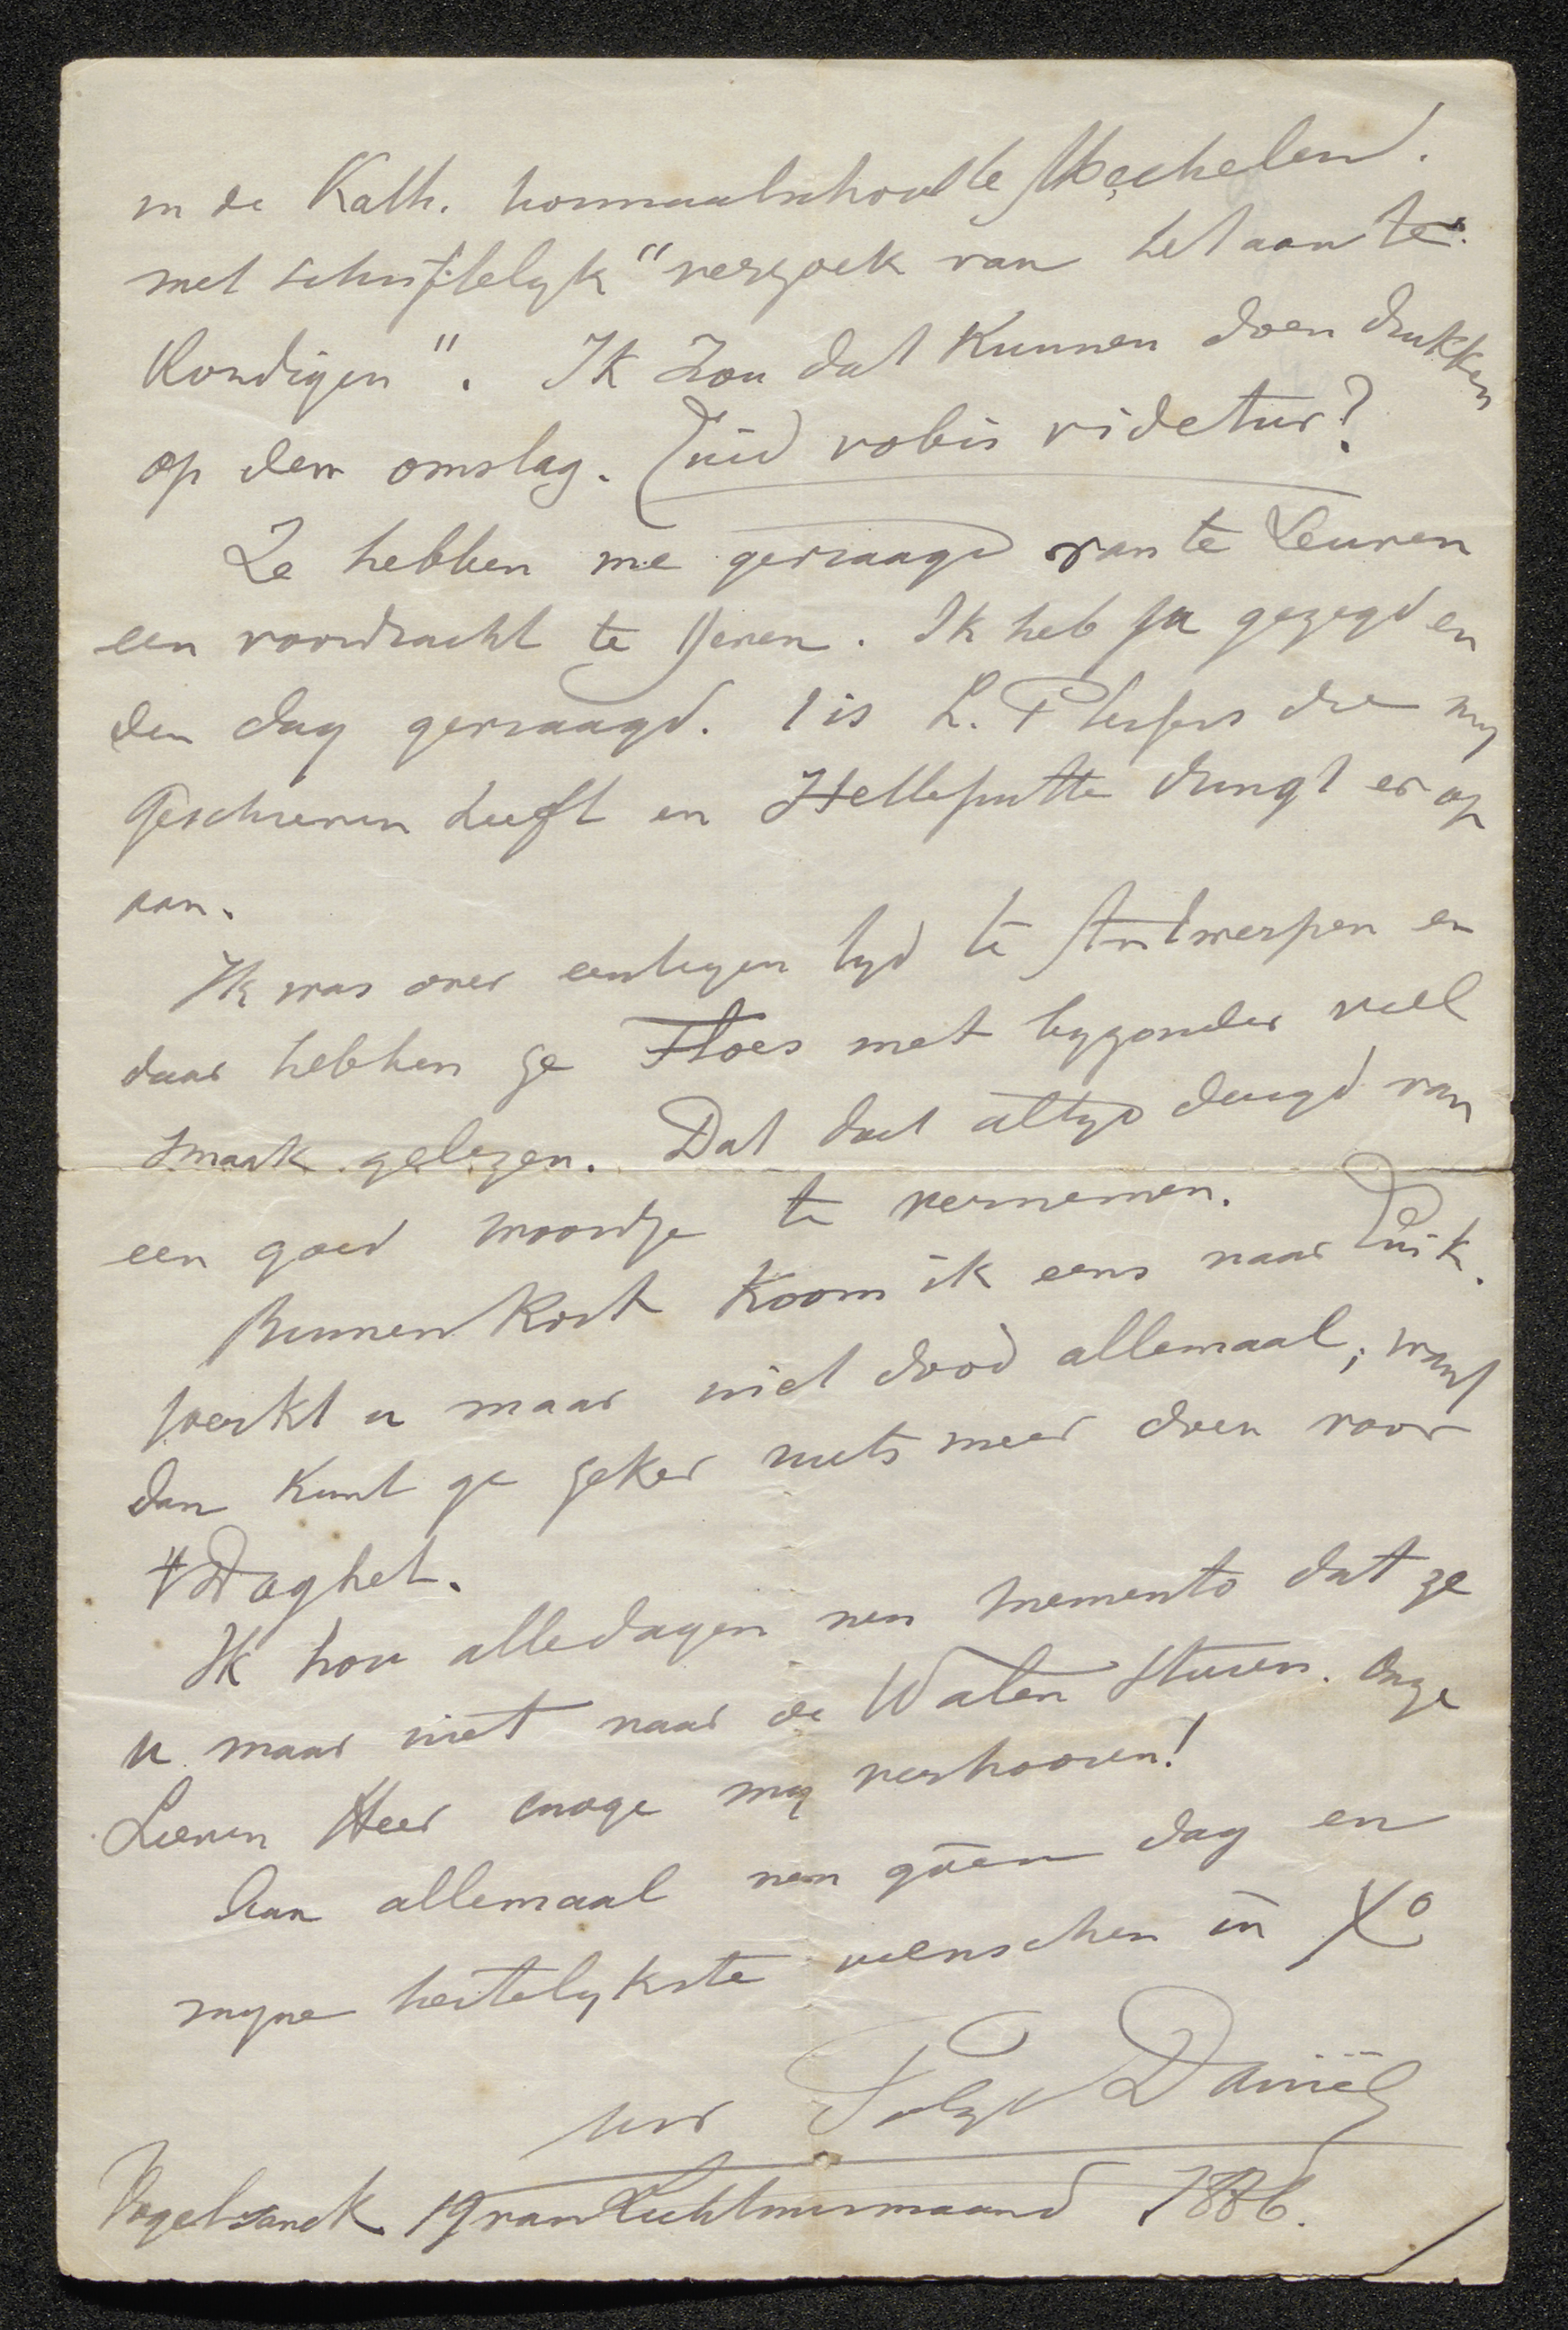 in de Kath. normaalschool te Mechelen.
met schriftelyk "verzoek van het aan te
kondigen". Ik zou dat kunnen doen drukken
op den omslag. Quid vobis videtur?
Ze hebben me gevraagd van te Leuven
een voordracht te geven. Ik heb ja gezegd en
den dag gevraagd. 't is L. Plessers die my
geschreven heeft en Helleputte dringt er op
aan.
Ik was over eenigen tyd te Antwerpen en
daar hebben ze Floes met byzonder veel
smaak gelezen. Dat doet altyd deugd van
een goed woordje te vernemen.
Binnen kort koom ik eens naar Luik.
Werkt u maar niet dood allemaal; want
dan kunt ge zeker niets meer doen voor
't Daghet.
Ik hou alledagen nen memento dat ze
u maar niet naar de Walen sturen. Onze
Lieven Heer moge my verhooren!
Aan allemaal nen goên dag en
myne hertelykste wenschen in Xo
uw Polyd Daniëls
Vogelsanck 19 van Lichtmismaand 1886.